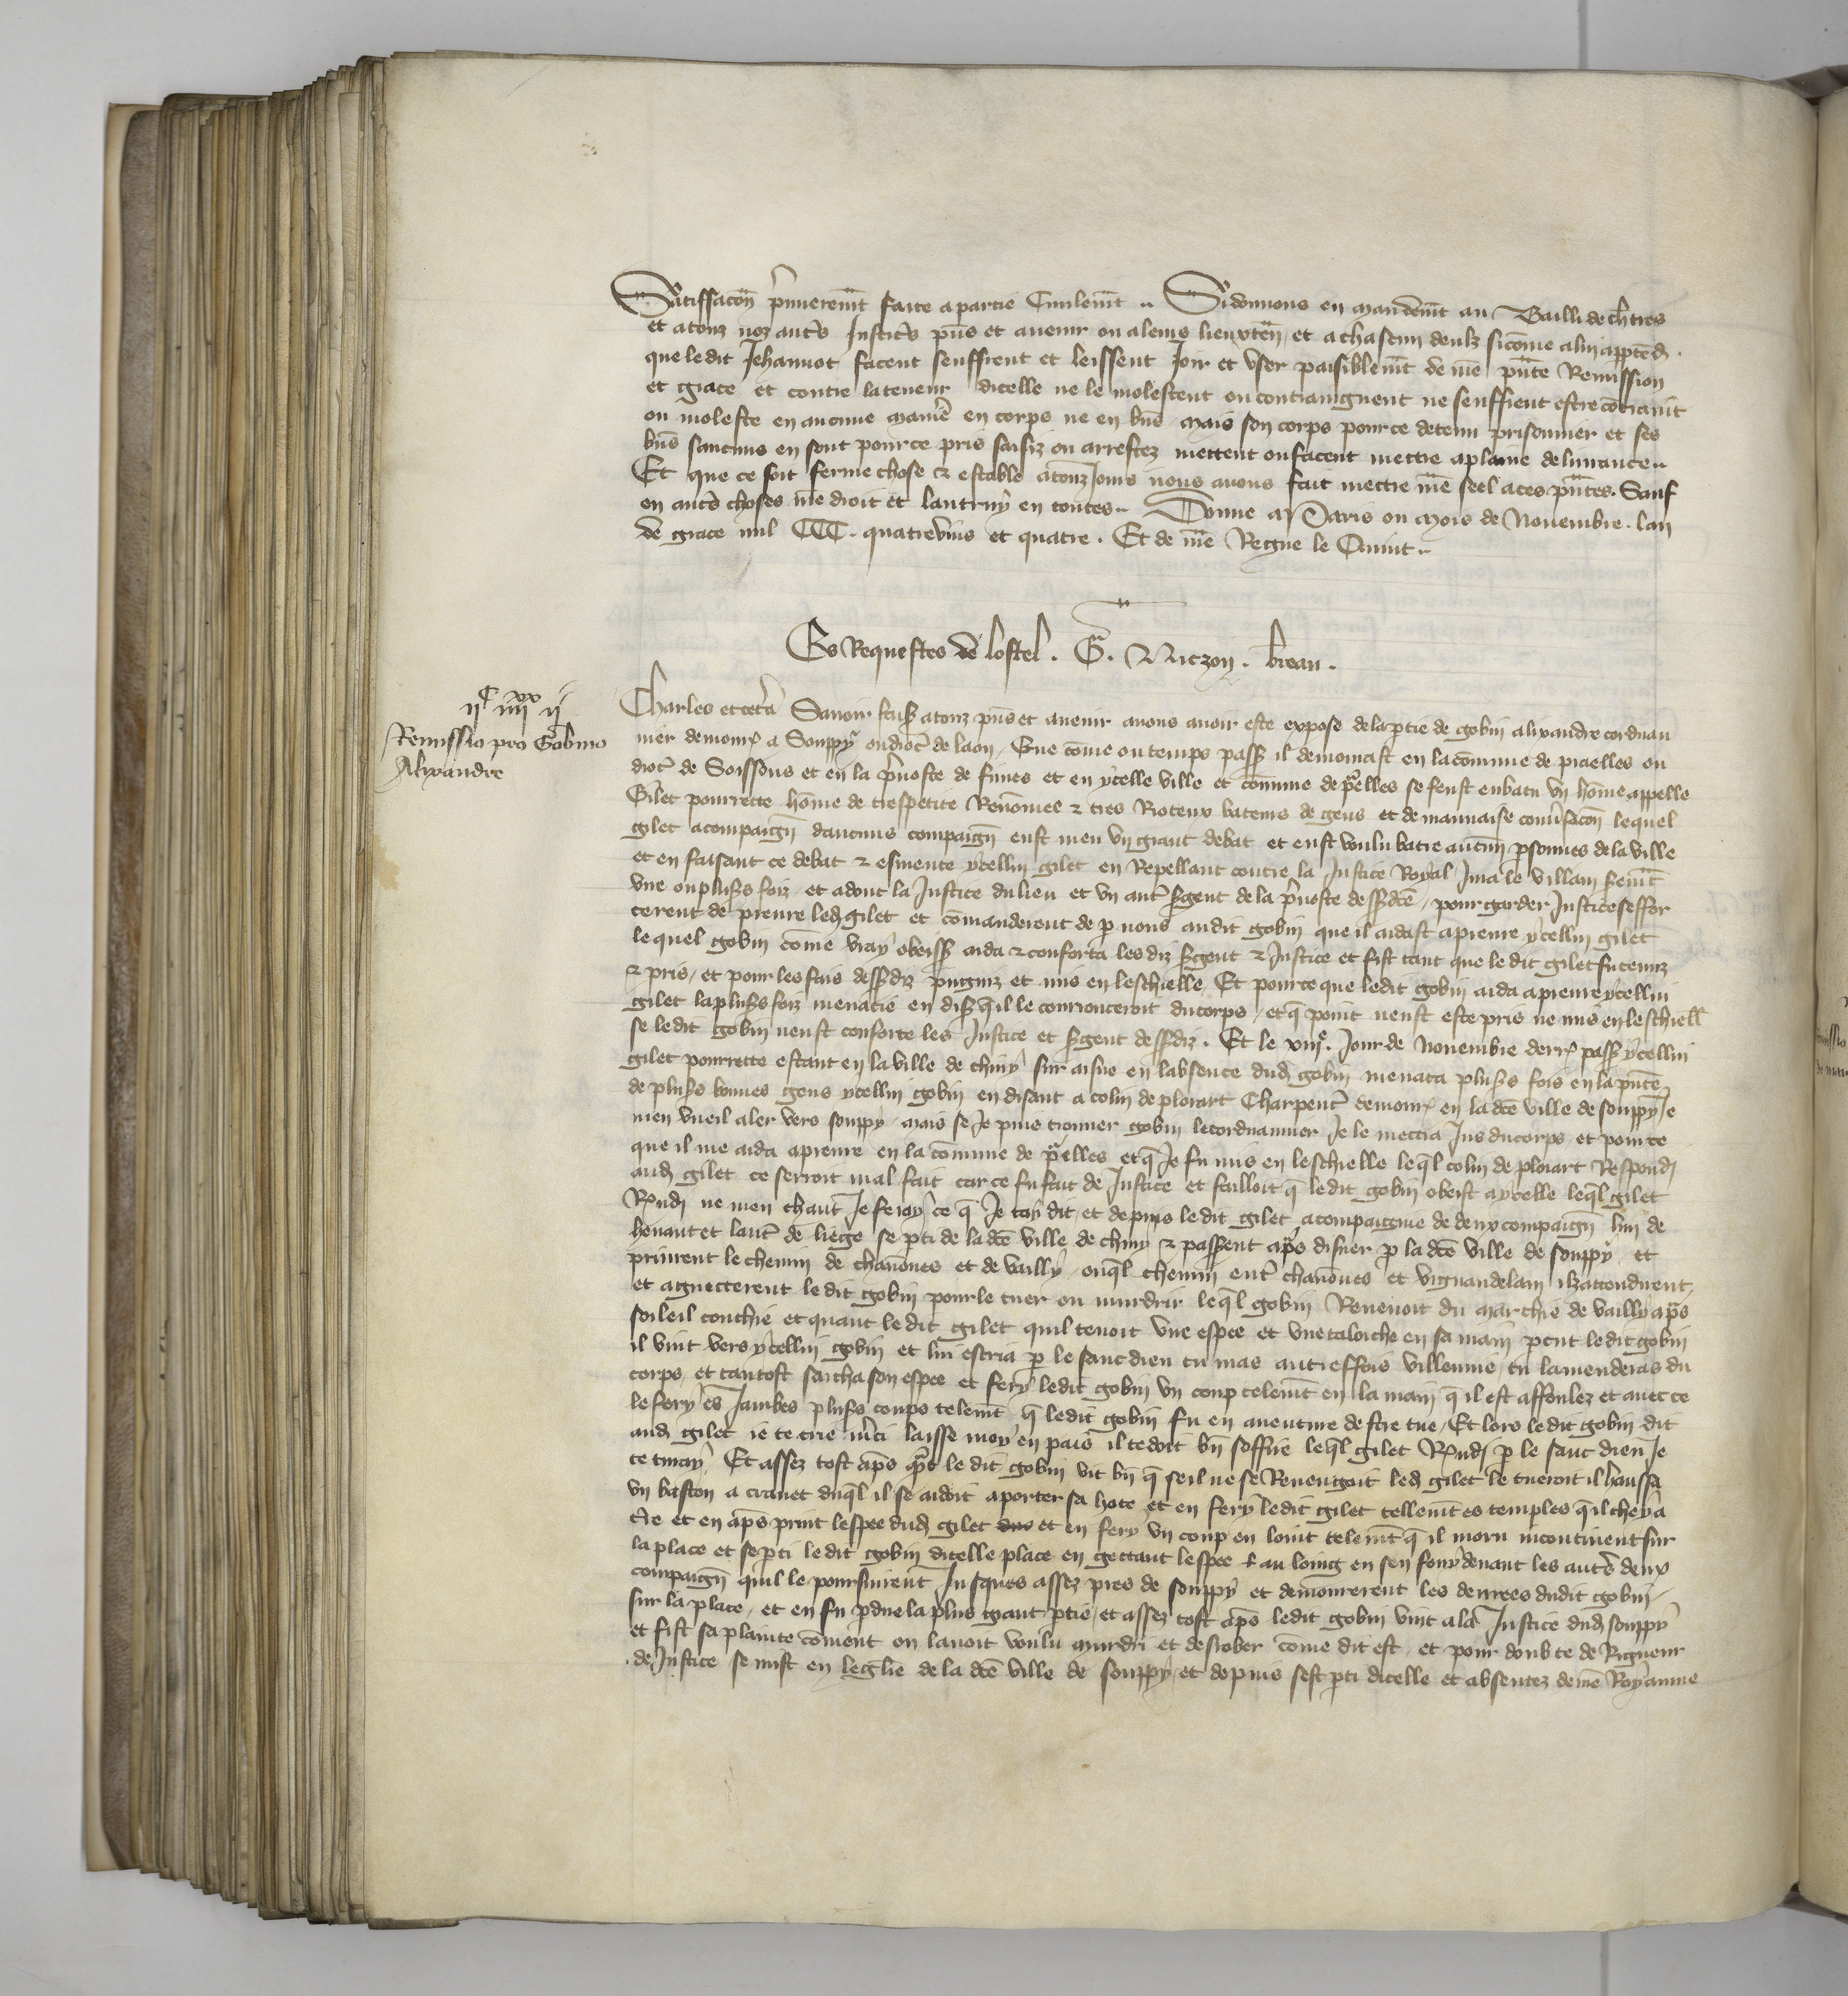 Satiffacōn p̄mierem̄t faicte a partie Civilem̄t .. Si donnons en mandem̄t au Bailli de ch̄rtres
et a touz noz autr̄s Justicīs pn̄s et avenir ou a leurs lieuxten̄ et a chascun deulx sicōme a lui app̄tend̄ .
que ledit Jehannot facent seuffrent et leissent Joir et user paisiblem̄t de n̄re pn̄te Remission
et grace et contre la teneur dicelle ne le molestent ou contraingnent ne seuffrent estre cōtraint
ou moleste en aucune manīe en corps ne en biēs mais son corps pour ce detenu prisonnier et ses
biēs saucuns en sont pour ce pris saisiz ou arrestez mettent ou facent mettre a plaine delivrance ..
Et que ce soit ferme chose & estable a touz Jours nous avons fait mettre n̄re seel a ces pn̄tes . Sauf
en autr̄s choses n̄re droit et lautruy en toutes .. Donne a Paris ou mois de Novembre . lan
de grace mil CCC . quatrevins et quatre . Et de n̄re Regne le Quint ..
Es Requestes de lostel . G . Mirzon . brean .
ijC iiijxx ij
Remissio pro Gobino
Alixandre
Charles etcetā Savoir faiss̄ a touz pn̄s et avenir avons avoir este expose de la p̄tie de gobin alixandre corduan
nier demour̄ a Souppy ou dioc̄ de laon , Que cōme ou temps pass̄ il demourast en la cōmune de praelles ou
dioc̄ de Soissons et en la p̄voste de fimes et en ycelle ville et cōmune de p̄elles se feust enbatu un hōme appelle
Gilet pourrette hōme de trespetite Renōmee & tres Rioteux bateurs de gens et de mauvaise conv̄sacōn lequel
gilet acompaign̄ daucuns compaign̄ eust meu un grant debat et eust voulu batre aucun̄ p̄sonnes de la ville
et en faisant ce debat & esmeute ycellui gilet en Repellant contre la Justice Royal Jura le villain serem̄t
une ou plus̄s foiz , et adont la Justice du lieu et un aut̄ s̄gent de la p̄voste dess̄dc̄e , pour garder Justice seffor
cerent de prenre led̄ gilet et cōmanderent de p̄ nous audit gobin que il aidast a prenre ycellui gilet
le quel gobin cōme vray obeiss̄ aida & conforta les diz s̄gent & Justice et fist tant que le dit gilet fu tenuz
& pris , et pour les fais dess̄diz pugniz et mis en leschielle , Et pource que ledit gobin aida a prenre ycellui
gilet la plus̄s foiz menacie en dis̄ q̄ il le courrouceroit du corps , et q̄ point neust este pris ne mis en leschiell̄
se ledit gobin neust conforte les Justice et s̄gent dess̄diz . Et le xiiije . Jour de Novembre derr̄ pass̄ ycellui
gilet pourrette estant en la ville de chiny sur aisne en labsence dud̄ gobin menaca plus̄s fois en la pn̄ce
de plus̄s bonnes gens ycellui gobin en disant a colin de ploiart Charpent̄ demour̄ en la dc̄e ville de souppy Je
men vueil aler vers souppy mais se Je puis trouver gobin le corduannier Je le mectra Jus du corps et pour ce
que il me aida a prenre en la cōmune de p̄elles et q̄ Je fu mis en leschielle leq̄l colin de ploiart Respond̄
aud̄ gilet ce serroit mal fait car ce fu fait de Justice et failloit q̄ ledit gobin obeist a ycelle leq̄l gilet
R̄ond̄ ne men chaut Je feray ce q̄ Je tay dit , et depuis ledit gilet acompaignie de deux compaign̄ lun de
henaut et laut̄ de liege se p̄ti de la dc̄e ville de chiny & passent ap̄s disner p̄ la dc̄e ville de souppy et
prinrent le chemin de chavōnes et de vailly , ouq̄l chemin ent̄ chavōnes et vignandelain ilz attendirent
et aguecterent le dit gobin pour le tuer ou murdrir leq̄l gobin Revenoit du marchie de vailly ap̄s
soleil couchie et quant ledit gilet quil tenoit une espee et une taloiche en sa main p̄cut ledit gobin
il vint vers ycellui gobin et lui escria p̄ le sanc dieu tu mas autreffois villenne , tu lamenderas du
corps , et tantost saicha son espee et fery ledit gobin un coup telem̄t en la main q̄ il est affoulez et avec ce
le fery es Jambes plus̄s coups telem̄t q̄ ledit gobin fu en aventure destre tue , Et lors ledit gobin dit
aud̄ gilet ie te crie m̄ci laisse moy en pais il te doit bn̄ soffire leq̄l gilet R̄ond̄ p̄ le sanc dieu Je
te turay . Et assez tost ap̄s q̄nt le dit gobin vit bn̄ q̄ seil ne se Revengoit led̄ gilet le tueroit il haussa
un baston a cranet duq̄l il se aidoit a porter sa hote et en fery ledit gilet tellem̄t es temples q̄ il chey a
t̄re et en ap̄s print lespee dud̄ gilet et en fery un coup en lout telem̄t q̄ il moru incontinent sur
la place et se p̄ti ledit gobin dicelle place en gectant lespee au loing en sen fouy devant les autr̄s deux
compaign̄ quil le poursuirent Jusques assez pres de souppy et demourerent les denrees dudit gobin
sur la place , et en fu p̄due la plus grant p̄tie , et assez tost ap̄s ledit gobin vint a la Justice dud̄ souppy
et fist sa plainte cōment on lavoit voulu murdri et desrober cōme dit est , et pour doubte de Rigueur
de Justice se mist en leglīe de la dc̄e ville de souppy et depuis sest p̄ti dicelle et absentez de n̄re Royaume